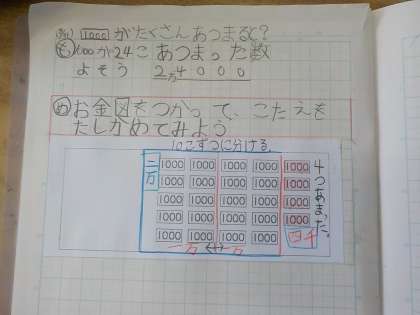 1000 がたくさんあつまると?
も 1000が24こ あつまった数
よそう 2万4000
め お金図をつかって、こたえを
たしかめてみよう
10こずつに分ける
二万
1000 1000 1000 1000 1000
1000 1000 1000 1000 1000
1000 1000 1000 1000 1000
1000 1000 1000 1000 1000
1000 1000 1000 1000
四千
4つあまった。
一万 一万